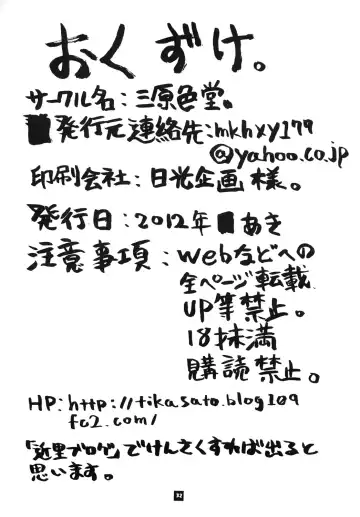 おくずけ。
サークル名：三原色堂。
発行元連絡先：mkhxy179
@yahoo.co.jp
印刷会社：日光企画様。
発行日：2012年 あき
注意事項：webなどへの
全ページ転載
UP等禁止。
18抹満
購読禁止。
HP：http://tikasato.blog109
fc2.com/
「近里ブログ」でけんさくすれば出ると
思います。
32